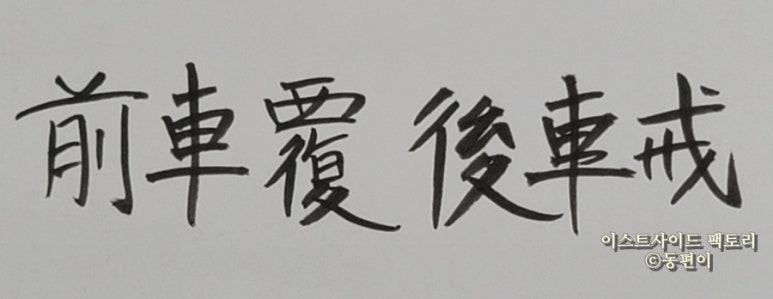 前車覆 後車戒
이스트사이드 팩토리
©동편이